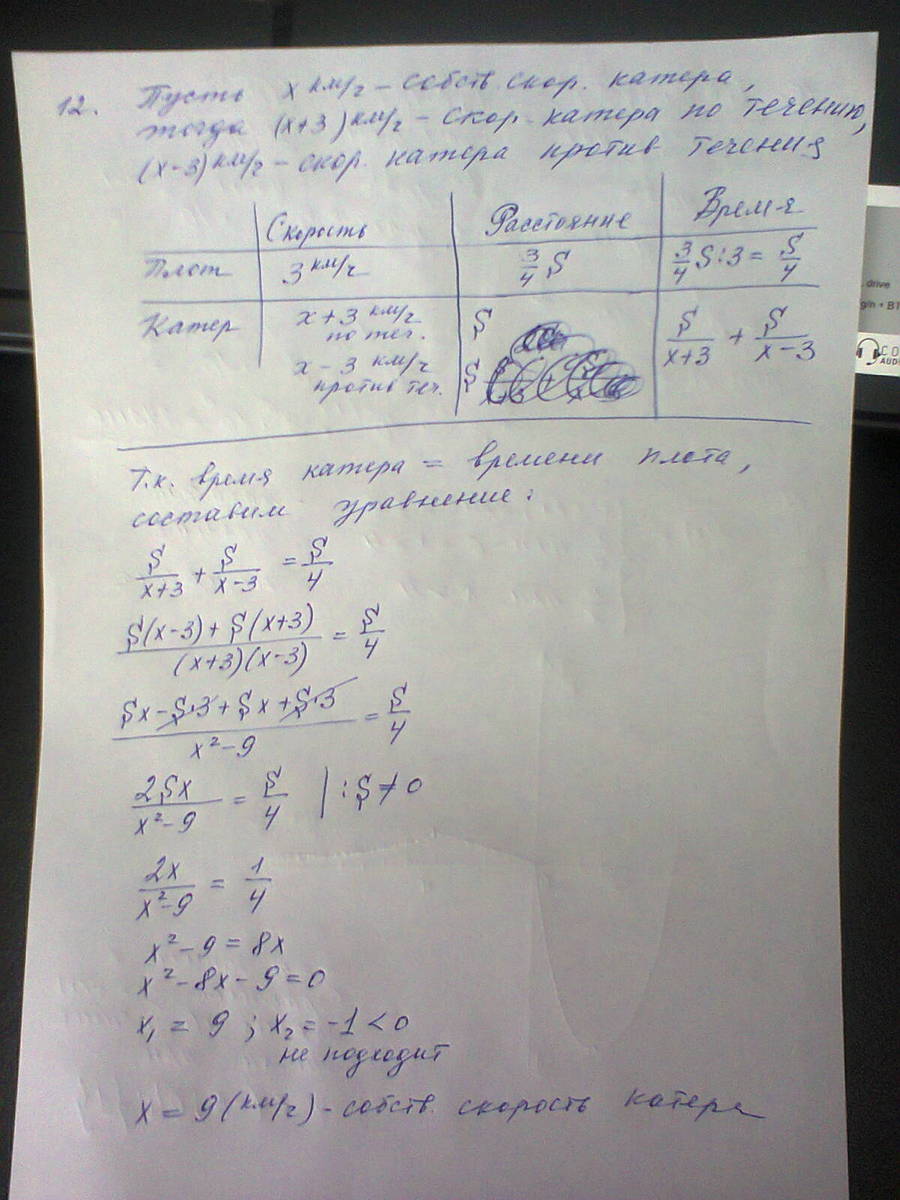 12. Пусть x км/ч – собств. скор. катера,
тогда (x+3) км/ч – скор. катера по течению,
(x-3) км/ч – скор. катера против течения
Скорость Расстояние Врем-я
Плот 3 км/ч 3/4 S 3/4 S:3 = S/4
Катер x+3 км/ч S S/(x+3) + S/(x-3)
по теч.
x-3 км/ч S
против теч.
Т.к. время катера = времени плота,
составим уравнение:
S/(x+3) + S/(x-3) = S/4
(S(x-3) + S(x+3))/((x+3)(x-3)) = S/4
(Sx - S·3 + Sx + S·3)/(x²-9) = S/4
2Sx/(x²-9) = S/4 | :S ≠ 0
2x/(x²-9) = 1/4
x²-9 = 8x
x²-8x-9 = 0
x₁ = 9 ; x₂ = -1 < 0
не подходит
x = 9 (км/ч) - собств. скорость катера
drive
CO
AUD